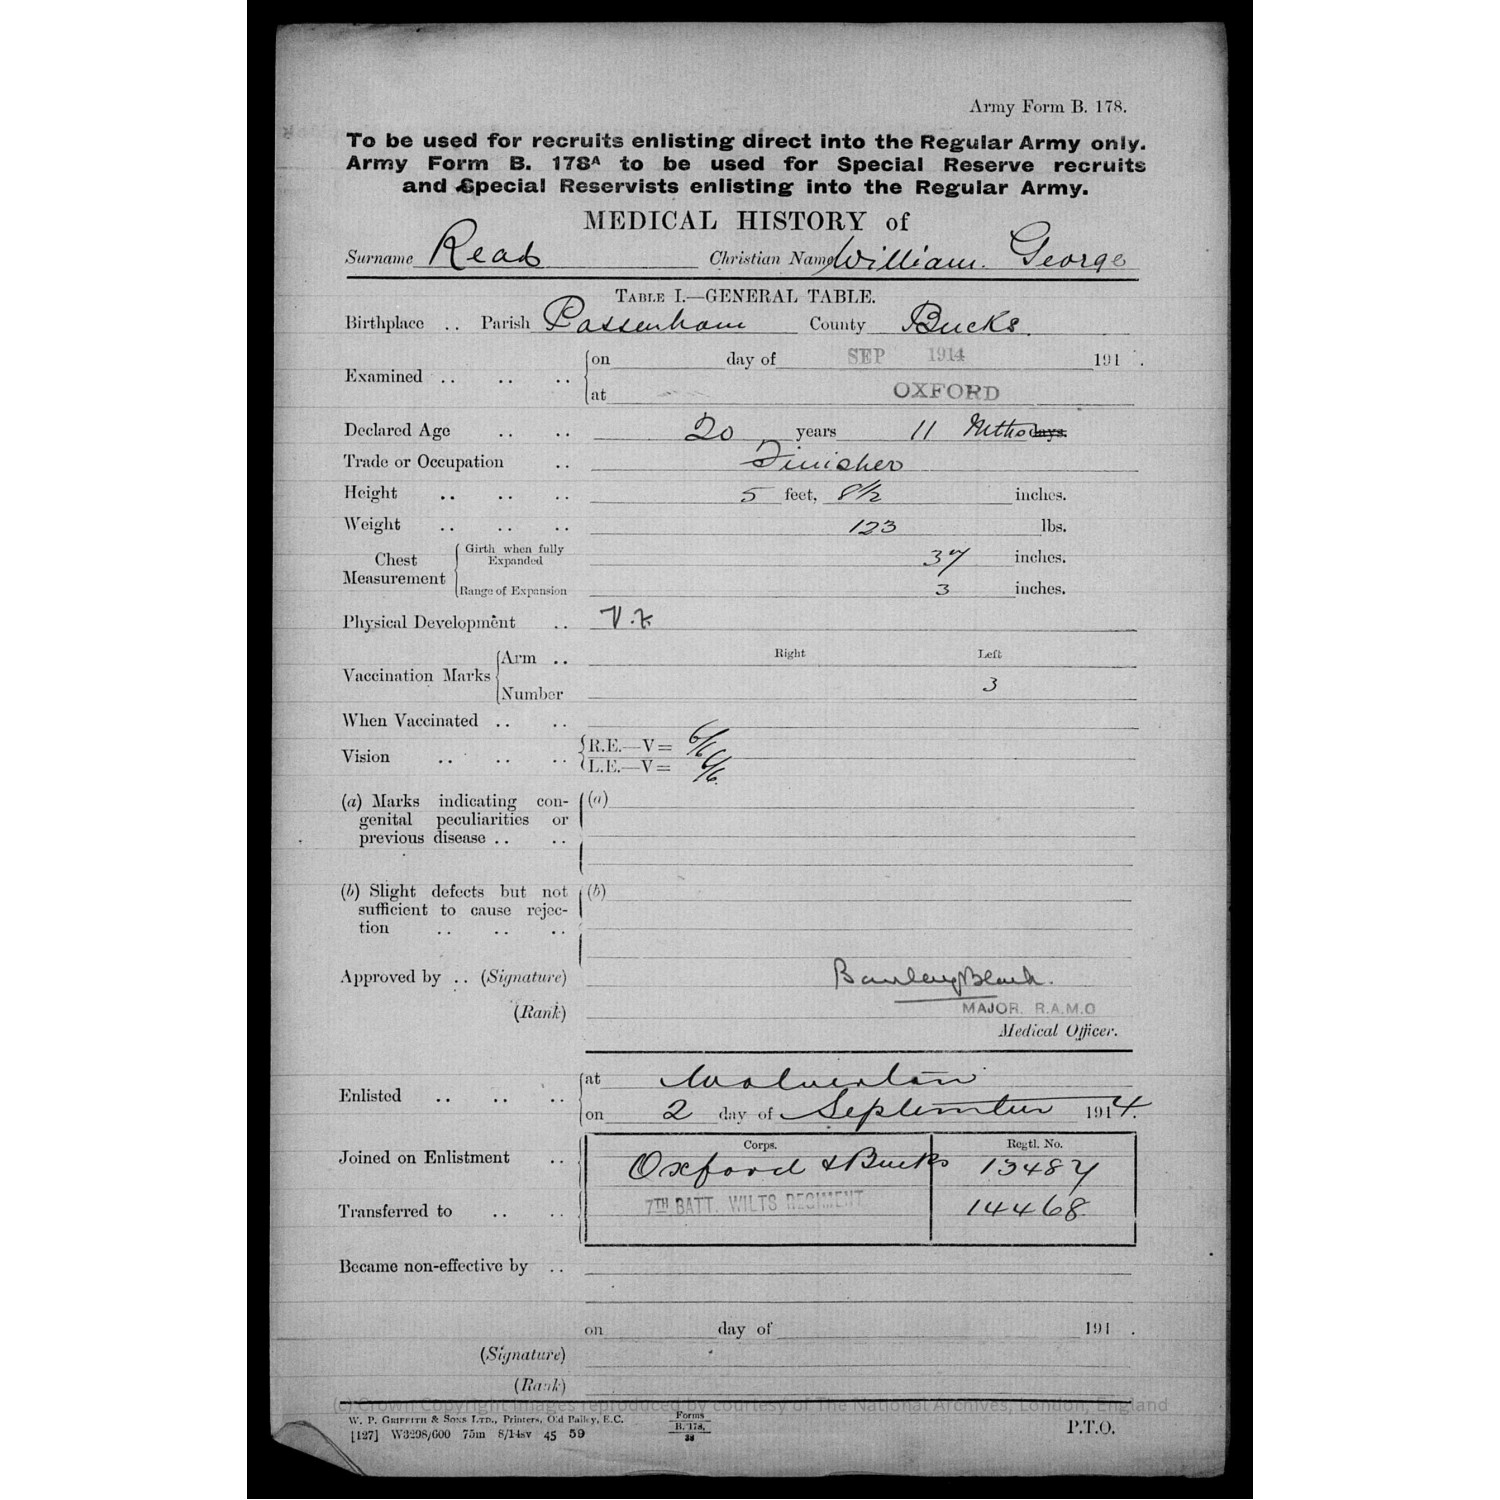 Army Form B. 178.
To be used for recruits enlisting direct into the Regular Army only.
Army Form B. 178A to be used for Special Reserve recruits
and Special Reservists enlisting into the Regular Army.
MEDICAL HISTORY of
Surname Read Christian Name William George
TABLE I.—GENERAL TABLE.
Birthplace .. Parish Passenham County Bucks.
Examined .. .. .. on day of SEP 1914 191 .
at OXFORD
Declared Age .. .. 20 years 11 Mths days.
Trade or Occupation .. Finisher
Height .. .. .. 5 feet, 8½ inches.
Weight .. .. .. 123 lbs.
Chest Measurement Girth when fully Expanded 37 inches.
Range of Expansion 3 inches.
Physical Development .. V.F.
Right Left
Vaccination Marks Arm ..
Number 3
When Vaccinated .. ..
Vision .. .. .. R.E.—V= 6/6
L.E.—V= 6/6.
(a) Marks indicating con- (a)
genital peculiarities or
previous disease .. ..
(b) Slight defects but not (b)
sufficient to cause rejec-
tion .. .. ..
Approved by .. (Signature) Black.
(Rank) MAJOR. R.A.M.C
Medical Officer.
Enlisted .. .. .. at Wolverton
on 2 day of September 1914.
Corps. Regtl. No.
Joined on Enlistment .. Oxford & Bucks 13487
Transferred to .. .. 7TH BATT. WILTS REGIMENT 14468
Became non-effective by ..
on day of 191 .
(Signature)
(Rank)
(c) Crown Copyright Images reproduced by courtesy of The National Archives, London, England
W. P. GRIFFITH & SONS LTD., Printers, Old Bailey, E.C. Forms
B. 178.
[127] W3298/600 75m 8/14sv 45 59
P.T.O.